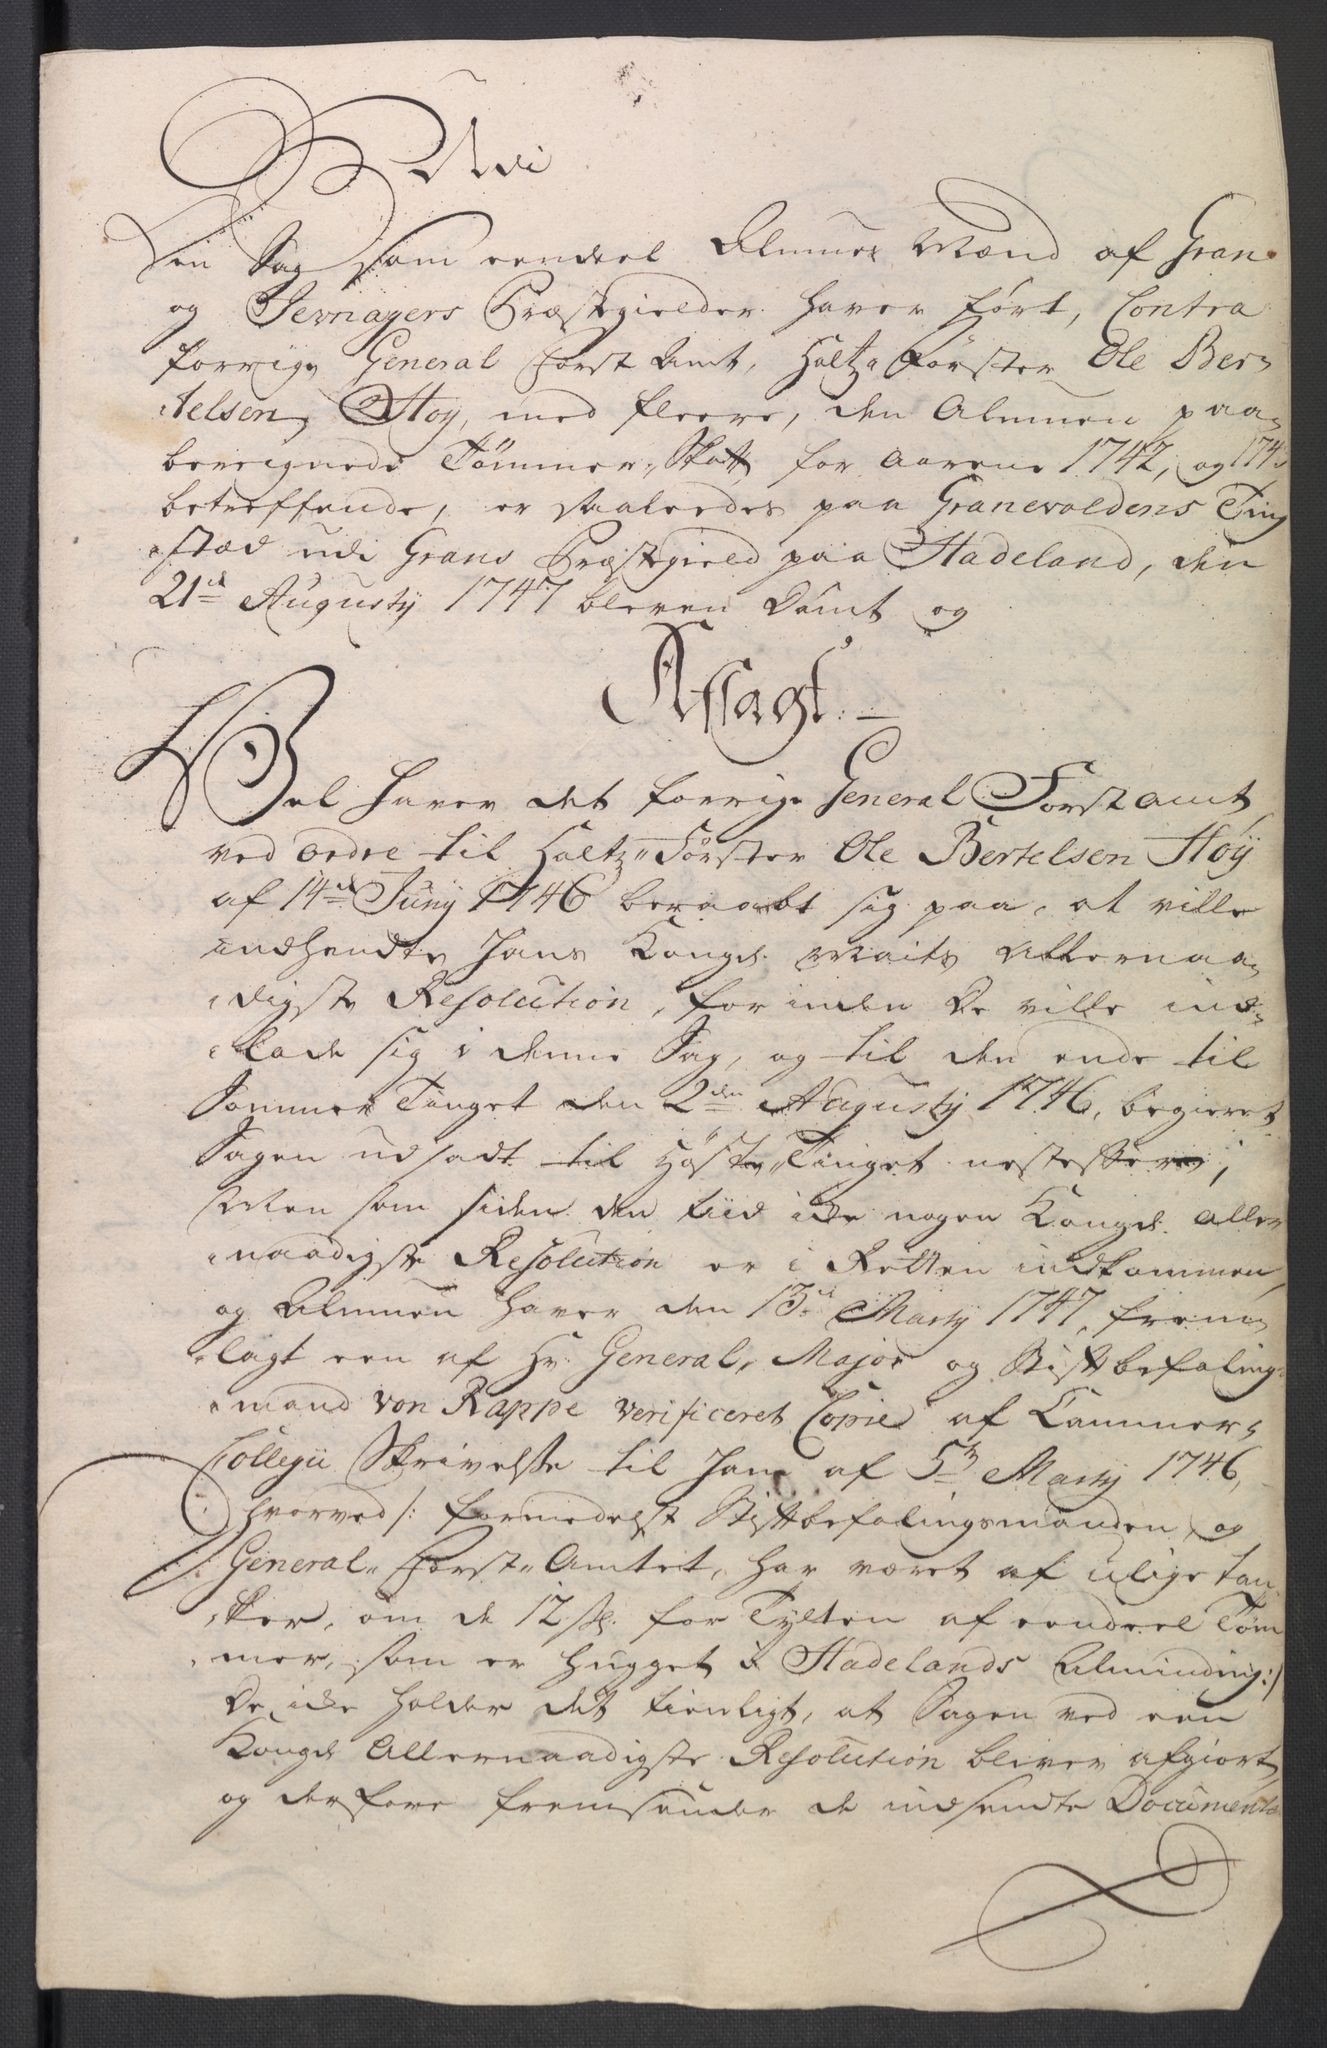 Udi
Een Sag som eendeel Almues Mænd af Gran
og Jevnagers Præstegielder haver ført, Contra
forrige General Forst Amt, Holtz Førster Ole Ber-
telsen Høy, med fleere, den Almuen paa-
beregnede Tømmer Skatt, for Aarene 1742, og 1743
betreffende, er saaleedes paa Granevoldens Ting
stæd udi Grans Præstegield paa Hadeland, den
21de Augustij 1747 bleven Dømt og
Afsagt. —
Vel haver det forrige General Forstamt
ved ordre til Holtz Førster Ole Bertelsen Høy
af 14de Junij 1746 beraabt sig paa, at ville
indhendte Hans Kongl. Maits Allernaa-
digste Resolution, forinden De ville ind-
lade sig i denne Sag, og til den ende til
Sommer Tinget den 2den Augustij 1746, begieret
Sagen udsadt til Høste Tinget nestefter;
Men som siden den tiid icke nogen Kongel. Aller-
naadigste Resolution er i Retten indkommen,
og Almuen haver den 13de Martij 1747, frem-
lagt een af Hr. General Major og Stiftbefalings-
mand von Rappe verificeret Copie af Cammer-
Collegii Skrivelse til Ham af 5te Martij 1746,
hvorved /: formedelst Stiftbefalingsmanden og
General Forst Amtet, har været af ulige tan-
ker, om de 12 sk. for Tylten af eendeel Tøm-
mer, som er hugget i Hadelands Alminding :/
De icke holder det tienligt, at Sagen ved een
Kongel. Allernaadigste Resolution bliver afgiort,
og derfore fremsender de indsendte Documenter